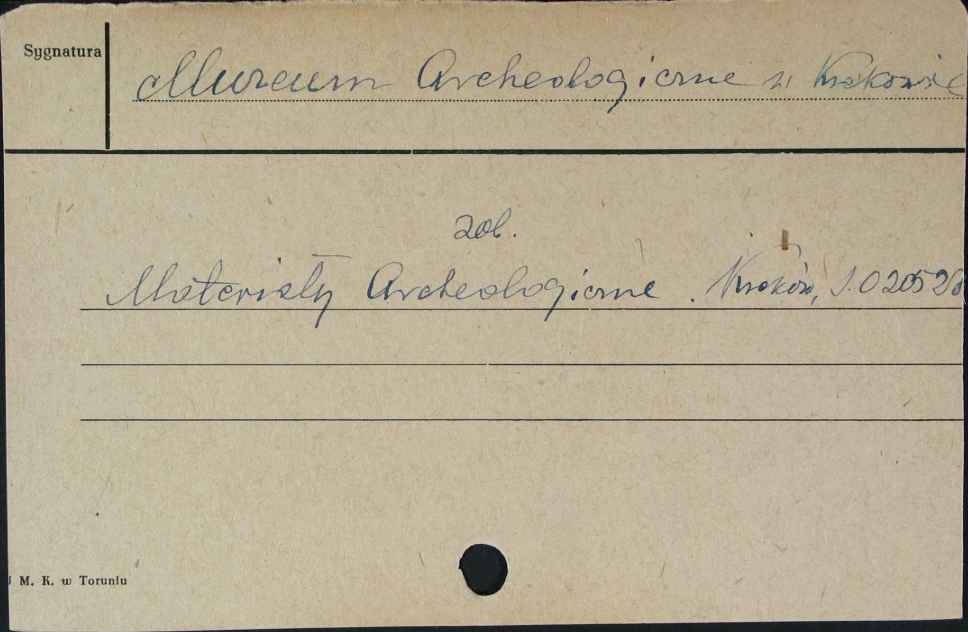 Sygnatura
Muzeum Archeologiczne w Krakowie
zob.
Materiały Archeologiczne. Kraków, S.02052
M. K. w Toruniu